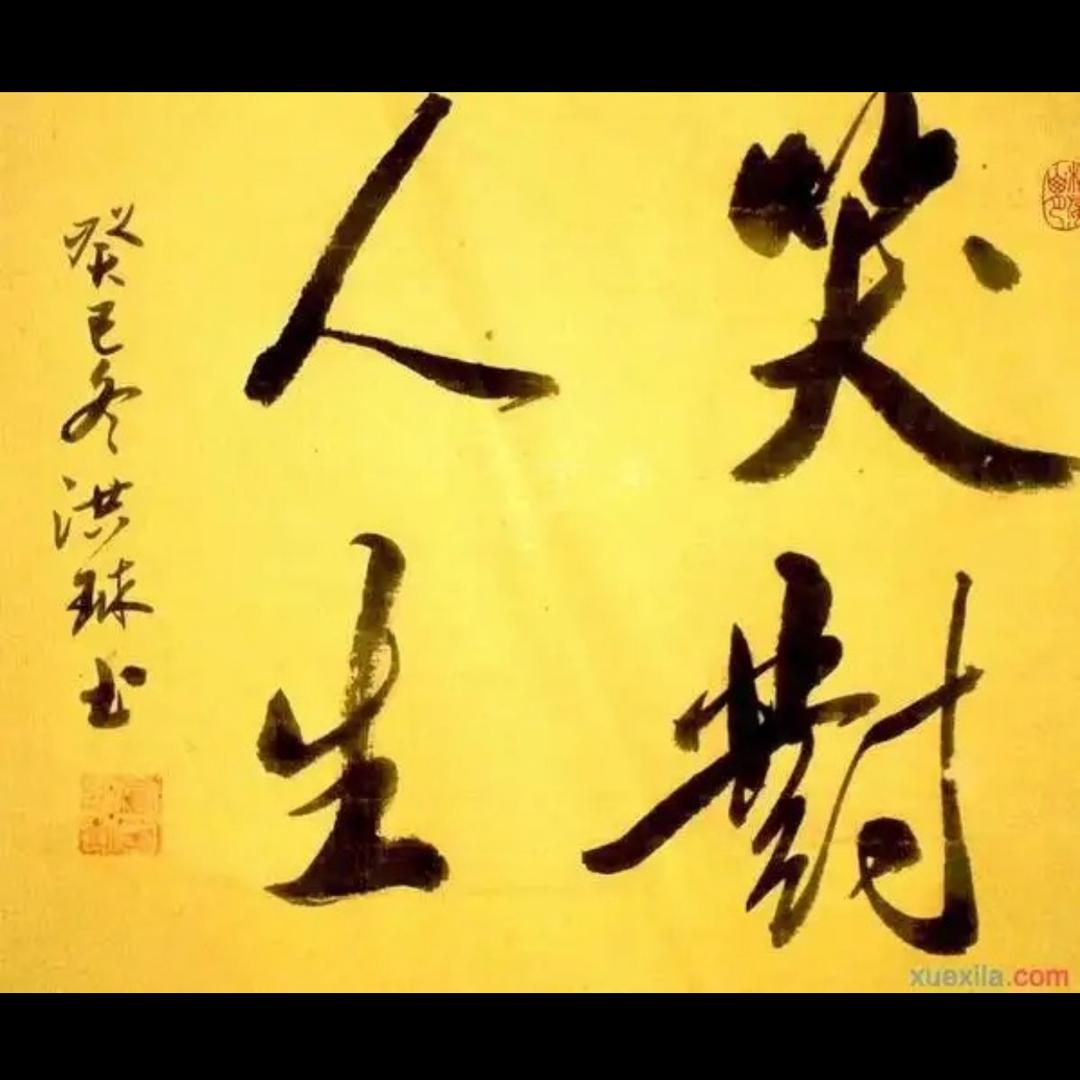 笑對
人生
癸巳冬洪书
xuexila.com